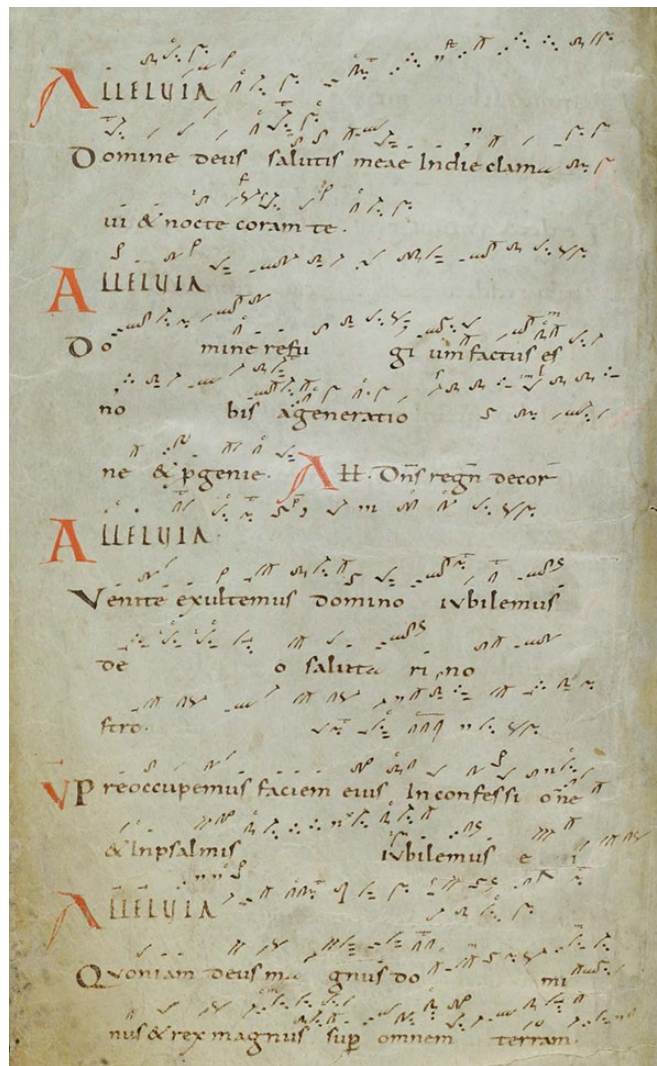 ALLELUIA
Domine deus salutis meae In die clama
ui & nocte coram te.
ALLELUIA
Do mine refu gi um factus es
no bis a generatio
ne & p̄genie. All. Dn̄s regn̄ decor̄
ALLELUIA.
Venite exultemus domino iubilemus
de o saluta ri no
stro.
V Preoccupemus faciem eius In confessi one
& In psalmis iubilemus e i
ALLELUIA
Quoniam deus ma gnus do mi
nus & rex magnus sup̄ omnem terram.